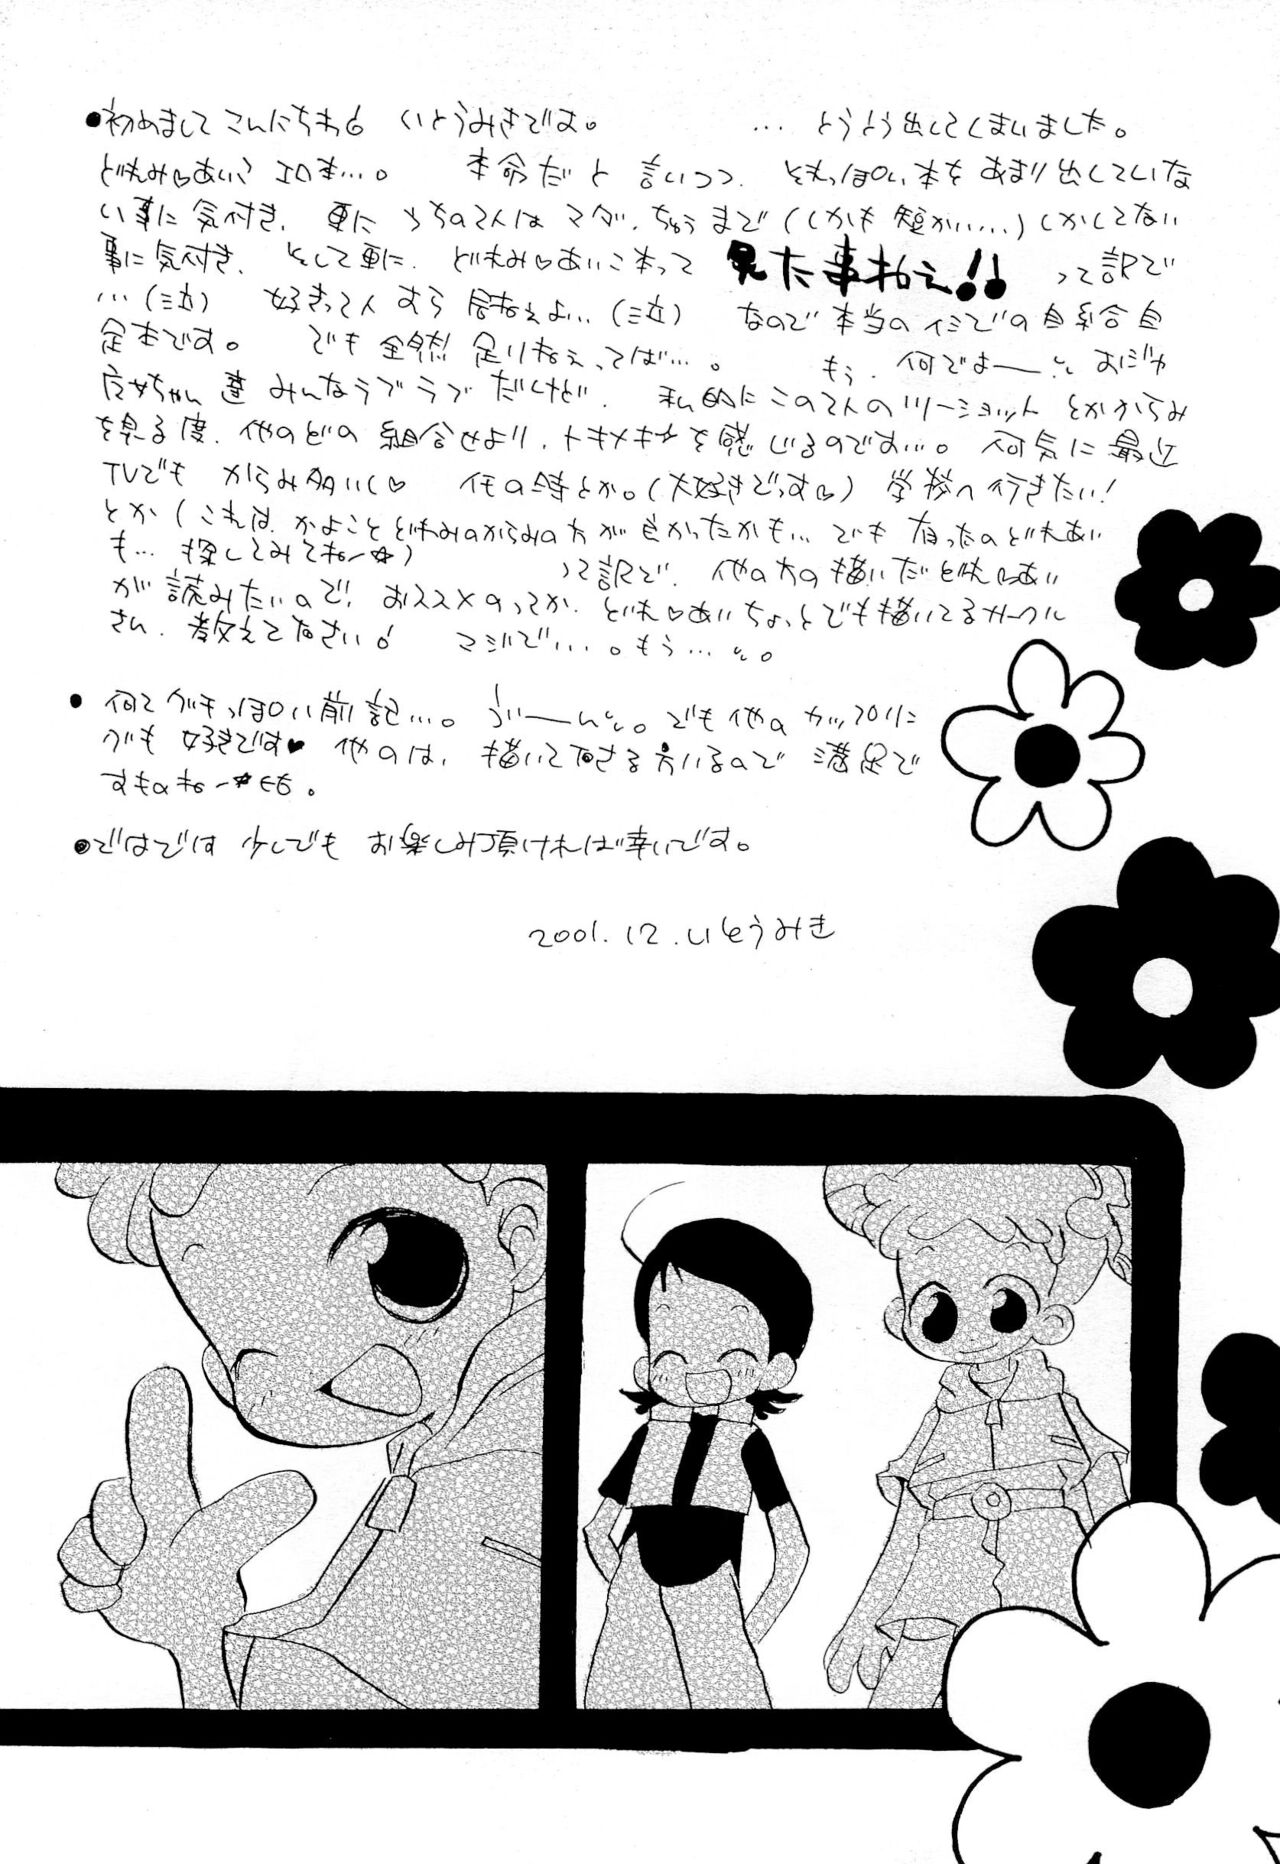 ●初めましてこんにちわ♂ いとうみきです。 …とうとう出してしまいました。
どれみ♡あいこエロ本…。 本命だと言いつつ、それっぽい本をあまり出していな
い事に気付き、更にうちの2人はマダ、ちゅうまで(しかも短かい…)しかしてない
事に気付き、そして更に、どれみ♡あいこ本って 見た事ねえ!! って訳で
…(泣) 好きって人すら居ねえよ…(泣) なので本当のイミでの自給自
足本です。 でも全然足りねえってば…。 もう、何でよーー。おジャ
魔女ちゃん達みんなラブラブだけど、私的にこの2人のツーショットとかからみ
を見る度、他のどの組合せより、トキメキ☆を感じるのです…。何気に最近
TVでもからみ多いし♡ (大好きでっす♡) 学校へ行きたい!
とか(これは、かよことどれみのからみの方が良かったかも…でも有ったのどれあい
も…探してみてねー☆) って訳で、他の方の描いたどれ♡あい
が読みたいので、おススメのってか、どれ♡あいちょっとでも描いてるサークル
さん、教えて下さい♂ マジで…。もう…。
● 何てグチっぽい前記…。 でも他のカップリン
グも好きです♥ 他のは、描いて下さる方いるので満足で
すものねー☆
●ではでは少しでもお楽しみ頂ければ幸いです。
2001.12.いとうみき